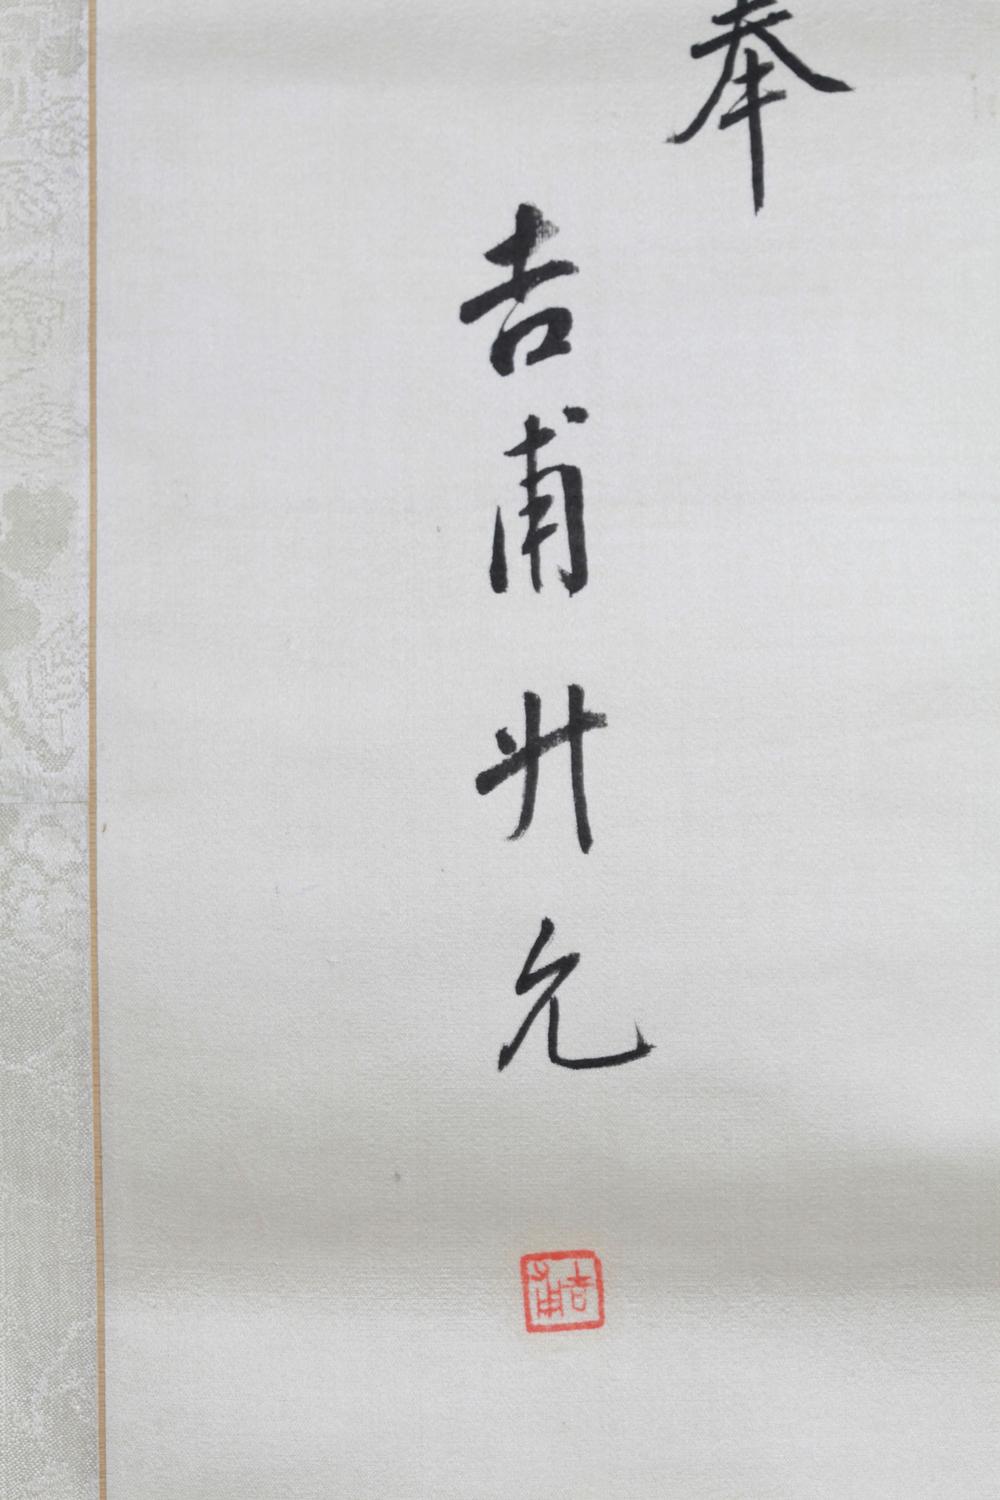 奉
吉甫升允
吉甫